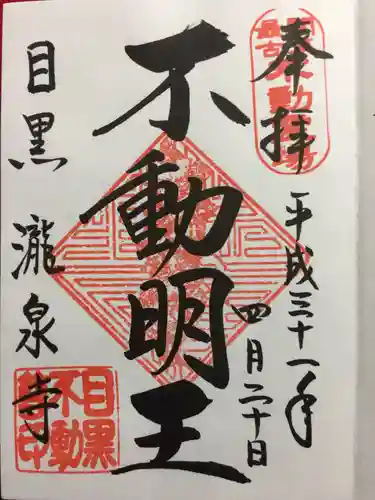 奉拝
平成三十一年
四月二十日
不動明王
目黒 瀧泉寺
目黒
不動